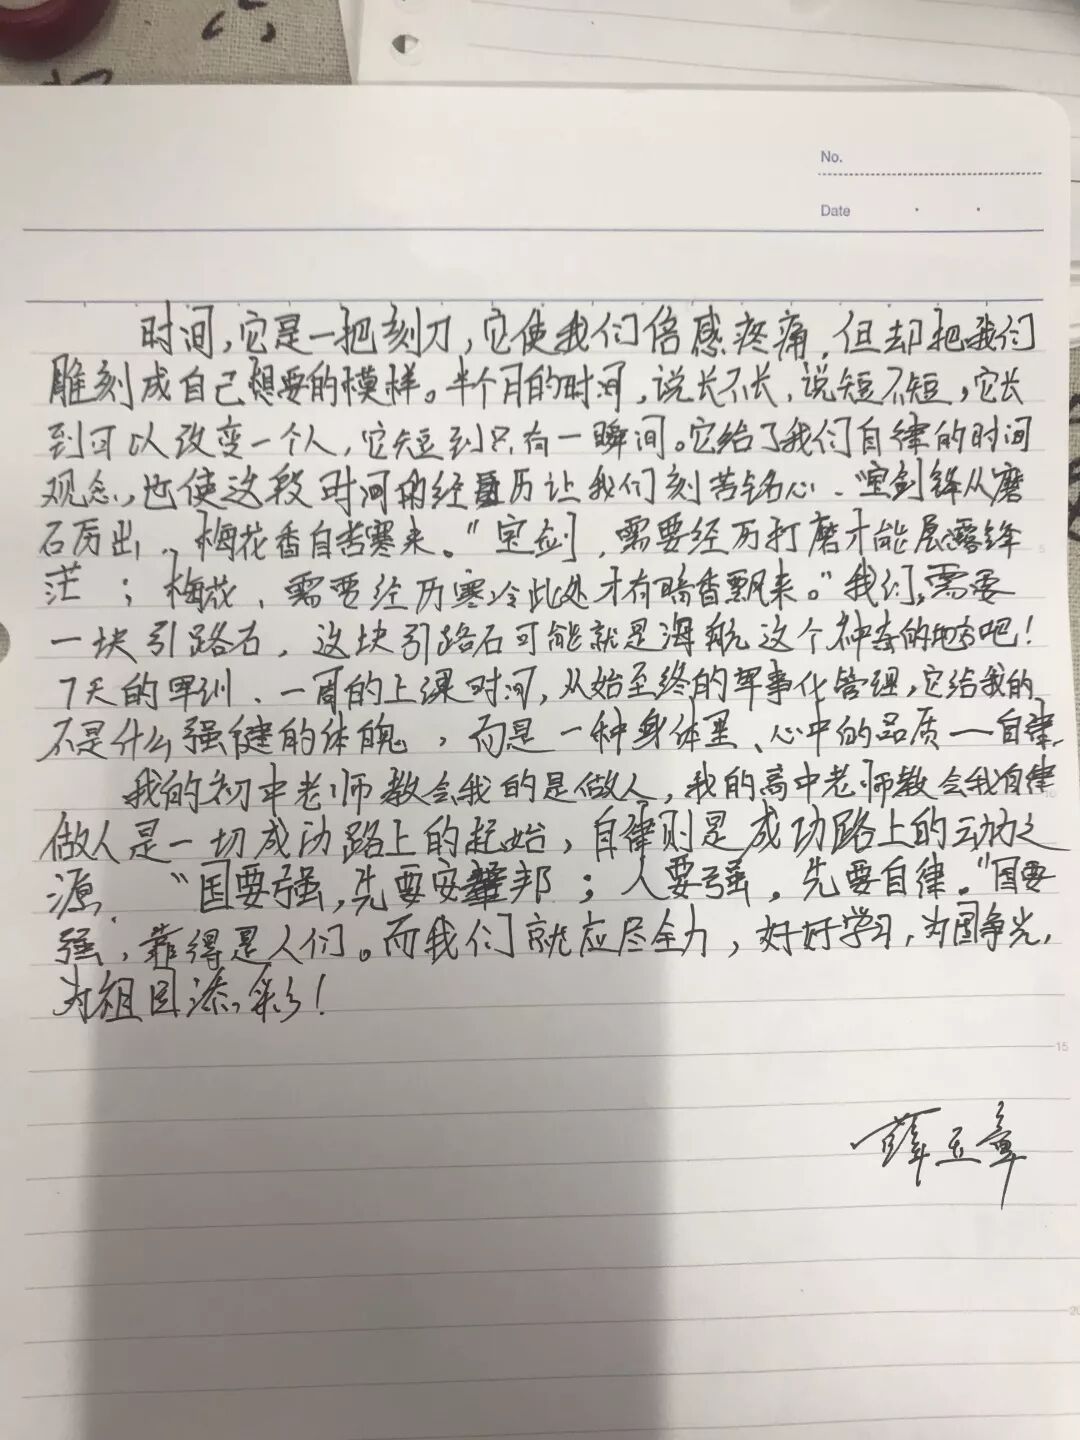 No.
Date
时间，它是一把刻刀，它使我们倍感疼痛，但却把我们
雕刻成自己想要的模样。半个月的时间，说长不长，说短不短，它长
到可以改变一个人，它短到只有一瞬间。它给了我们自律的时间
观念，也使这段时间的经历让我们刻苦铭心、“宝剑锋从磨
石厉出，梅花香自苦寒来。”宝剑，需要经历打磨才能展露锋
茫；梅花，需要经历寒冷此处才有暗香飘来。”我们，需要
一块引路石，这块引路石可能就是海航这个神奇的地方吧！
7天的军训、一周的上课时间，从始至终的军事化管理，它给我的
不是什么强健的体魄，而是一种身体里、心中的品质—自律，
我的初中老师教会我的是做人，我的高中老师教会我自律
做人是一切成功路上的起始，自律则是成功路上的动力之
源，“国要强，先要安邦；人要强，先要自律。”国要
强，靠得是人们。而我们就应尽全力，好好学习，为国争光，
为祖国添彩！
薛玉章
5
10
15
20